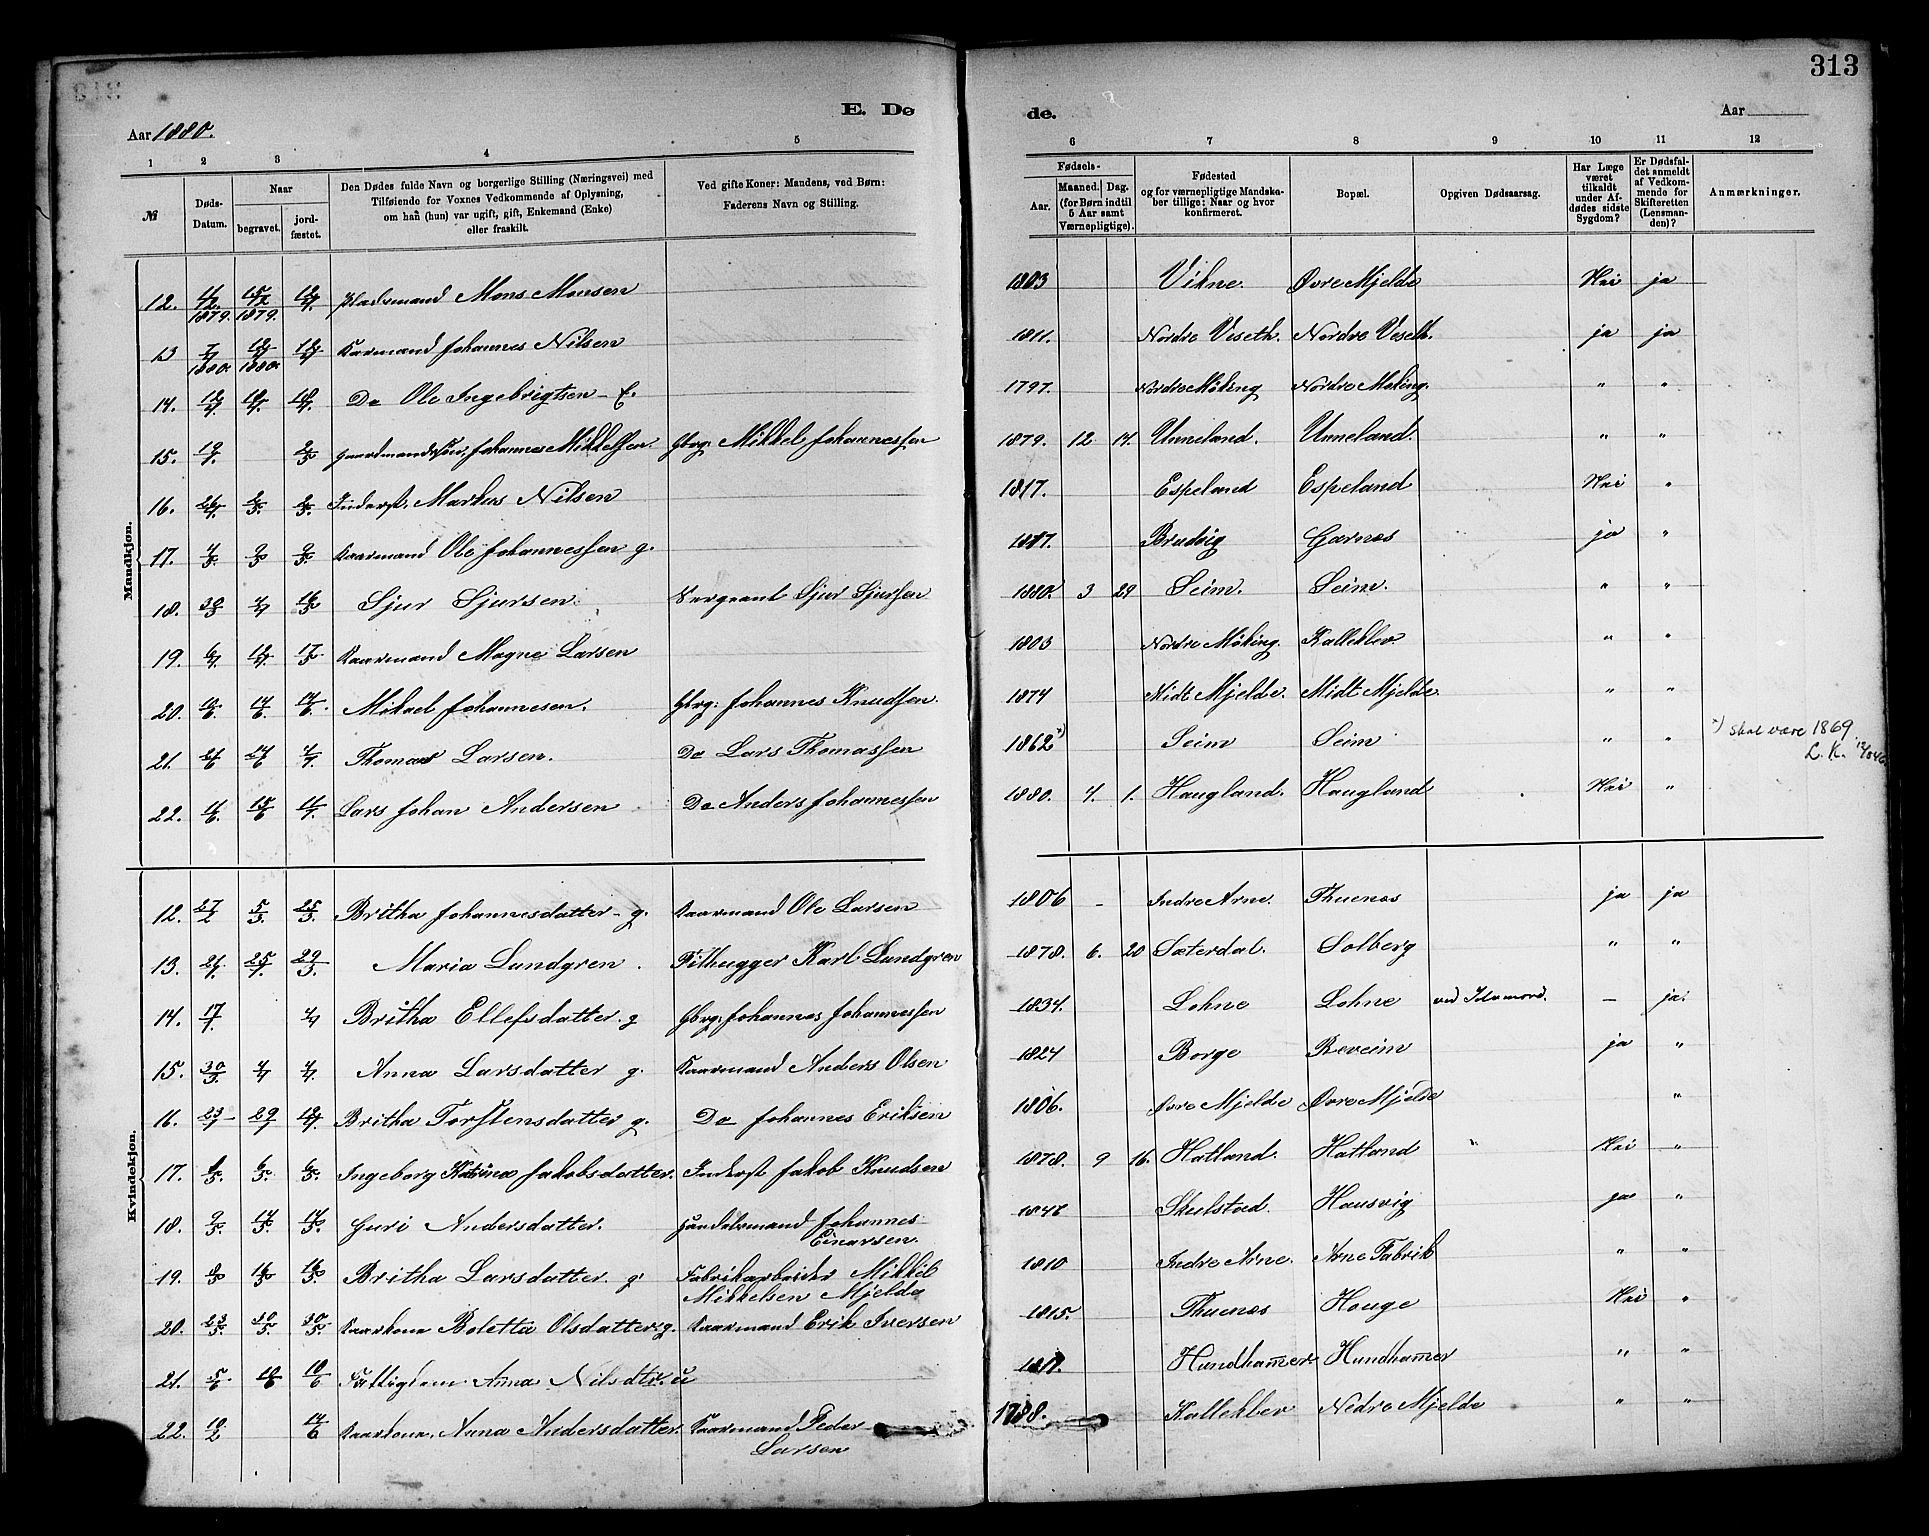 313
E. Dø de.
Aar 1880. Aar
1 2 3 4 5 6 7 8 9 10 11 12
№
Døds-Datum.
Naar
begravet.
jord-fæstet.
Den Dødes fulde Navn og borgerlige Stilling (Næringsvei) med
Tilføiende for Voxnes Vedkommende af Oplysning,
om han (hun) var ugift, gift, Enkemand (Enke)
eller fraskilt.
Ved gifte Koner: Mandens, ved Børn:
Faderens Navn og Stilling.
Fødsels-
Aar.
Maaned. Dag.
(for Børn indtil
5 Aar samt
Værnepligtige).
Fødested
og for værnepligtige Mandska-
ber tillige: Naar og hvor
konfirmeret.
Bopæl.
Opgiven Dødsaarsag.
Har Læge
været
tilkaldt
under Af-
dødes sidste
Sygdom?
Er Dødsfal-
det anmeldt
af Vedkom-
mende for
Skifteretten
(Lensman-
den)?
Anmærkninger.
Mandkjøn.
12. 1879. 1879. Pladsmand Mons Monsen 1803 Vikne. Øvre Mjelde Nei ja
13 1880. 1880. Kaarmand Johannes Nilsen 1811. Nordre Veseth. Nordre Veseth. ja ja
14. Do Ole Ingebrigtsen - E. 1797. Nordre Møking Nordre Møking. " "
15. 19/4 Gaardmandssøn Johannes Mikkelsen. Gbrg: Mikkel Johannessen 1879. 12 14. Unneland. Unneland. " "
16. 26/4 2/5. 2/5. Inderst. Markus Nilsen 1817. Espeland Espeland Nei "
17. 4/5 9/5 9/5. Kaarmand Ole Johannessen g. Brudvig Garnes ja "
18. Sjur Sjursen. Sergeant Sjur Sjursen 1880. 3 29 Seim. Seim. " "
19. Kaarmand Magne Larsen 1803 Nordre Møking. Kalleklev. " "
20. Mikael Johannesen. Gbrg: Johannes Knudsen. 1874 Midt Mjelde. Midt Mjelde. " "
21. Thomas Larsen. Do Lars Thomassen 1862 *) Seim Seim " " *) skal være 1869.
L. K.
22. Lars Johan Andersen Do Anders Johannessen 1880. 4. 1. Haugland. Haugland Nei "
Kvindekjøn.
12. 27/2 5/3. 25/3. Britha Johannesdatter - g. Kaarmand Ole Larsen 1806 - Indre Arne. Thuenes ja ja
13. 25/4. 29/3. Maria Lundgren. Filhugger Karl Lundgren 1878. 6. 20 Sæterdal. Solberg " "
14. 17/4. Britha Ellefsdatter. g Gbrg: Johannes Johannessen 1834. Lohne Lohne ved Selvmord. - ja.
15. 30/3. 4/4 4/4. Anna Larsdatter g. Kaarmand Anders Olsen 1824 Borge Reveim ja "
16. 29/4 Britha Torstensdatter g. Do Johannes Eriksen 1806. Øvre Mjelde Øvre Mjelde "
17. 6/5. 6/5. Ingeborg Katrina Jakobsdatter. Inderst Jakob Knudsen 1878. 9 16. Hatland. Hatland " Nei "
18. 9/5. 17/5. 17/5. Guri Andersdatter. Handelsmand Johannes
Einarsen. Skulstad Hausvig ja "
19. 16/5. 16/5. Britha Larsdatter. g. Fabrikarbeider Mikkel
Mikkelsen Mjelde 1810 Indre Arne. Arne Fabrik " "
20. 23/5. 30/5. 30/5. Kaarkone Boletta Olsdatter g. Kaarmand Erik Iversen 1815. Thuenes Houge Nei "
21. 5/6. 10/6 10/6 Fattiglem. Anna Nilsdtr. u Hundhamer. Hundhamer " "
22. 10/2 17/6 Kaarkone. Anna Andersdatter. Kaarmand Peder
Larsen 1788. Kalleklev Nedre Mjelde " "